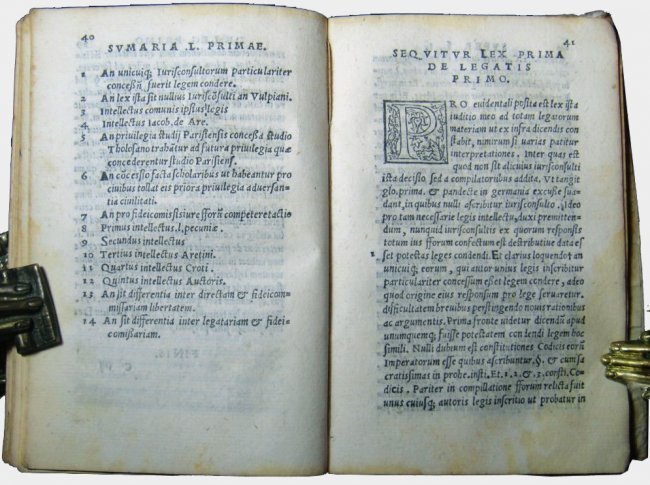 40
SVMARIA .L. PRIMAE.
1 An unicuiq; Iurisconsultorum particulariter
concessũ fuerit legem condere.
2 An lex ista sit nullius Iurisc̃õsulti an Vlpiani.
3 Intellectus comunis ipsius legis
4 Intellectus Iacob. de Are.
5 An privilegia studij Parisiensis concessa studio
Tholosano trahãtur ad futura privilegia quæ
concederentur studio Parisiensi.
6 An cõcessio facta scholaribus ut habeantur pro
civibus tollat eis priora privilegia adversan-
tia civilitati.
7 An pro fideicomissis iure fforũ competere actio
8 Primus intellectus .l. pecuniæ.
9 Secundus intellectus
10 Tertius intellectus Aretini.
11 Quartus intellectus Croti.
12 Quintus intellectus Auctoris.
13 An sit differentia inter directam & fideicom-
missariam libertatem.
14 An sit differentia inter legatariam & fidei-
comissariam.
41
SEQVITVR LEX PRIMA
DE LEGATIS
PRIMO.
PRO evidentali posita est lex ista
iuditio meo ad totam legatorum
materiam ut ex infra dicendis con
stabit, nimirum si varias patitur
interpretationes. Inter quas est
quod non sit alicuius iurisconsulti
ista decisio, sed a compilatoribus addita. Vt tangit
glo. prima. & pandectæ in germania excusæ sua-
dant, in quibus nulli ascribitur iurisconsulto. Ideo
pro tam necessariæ legis intellectu, duxi premitten-
dum, nunquid iurisconsultis ex quorum responsis
totum ius fforum confectum est distributivæ data es
1 set potestas leges condendi. Et clarius loquendo an
unicuiq; eorum, qui autor unius legis inscribitur
particulariter concessum esset legem condere, adeo
quod origine eius responsum pro lege servaretur.
difficultatem breuibus perstringendo rationibus
ac argumentis. Prima fronte videtur dicendũ apud
unumquemq; fuisse potestatem condendi legem hoc
simili. Nulli dubium est constitutiones Codicis eorũ
Imperatorum esse quibus ascribuntur. §. & cum sa
cratissimas in prohe. insti. Et. 1. 2. & 3. consti. Co-
dicis. Pariter in compillatione fforum relicta fuit
unus cuiusq; autoris legis inscritio ut probatur in